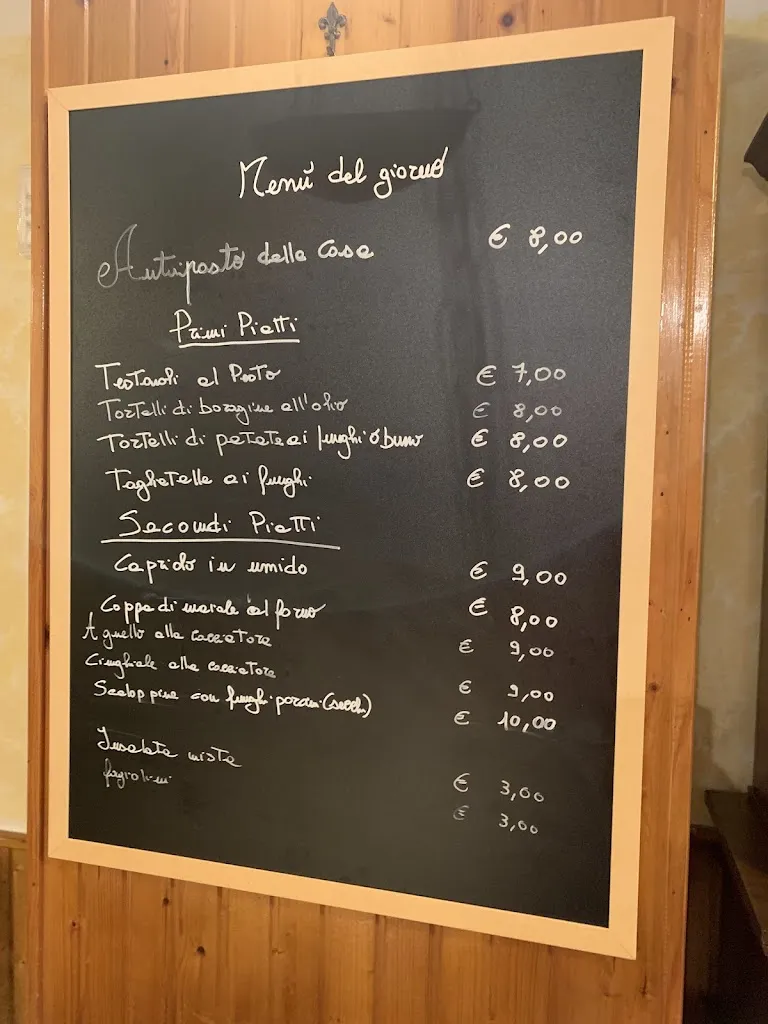 Menù del giorno
Antipasto della casa € 8,00
Primi Piatti
Testaroli al Pesto € 7,00
Tortelli di boragine all'olio € 8,00
Tortelli di patate ai funghi o burro € 8,00
Tagliatelle ai funghi € 8,00
Secondi Piatti
Capriolo in umido € 9,00
Coppa di maiale al forno € 8,00
Agnello alla cacciatora € 9,00
Cinghiale alla cacciatora € 9,00
Scaloppine con funghi porcini (secchi) € 10,00
Insalata mista € 3,00
fagiolini € 3,00